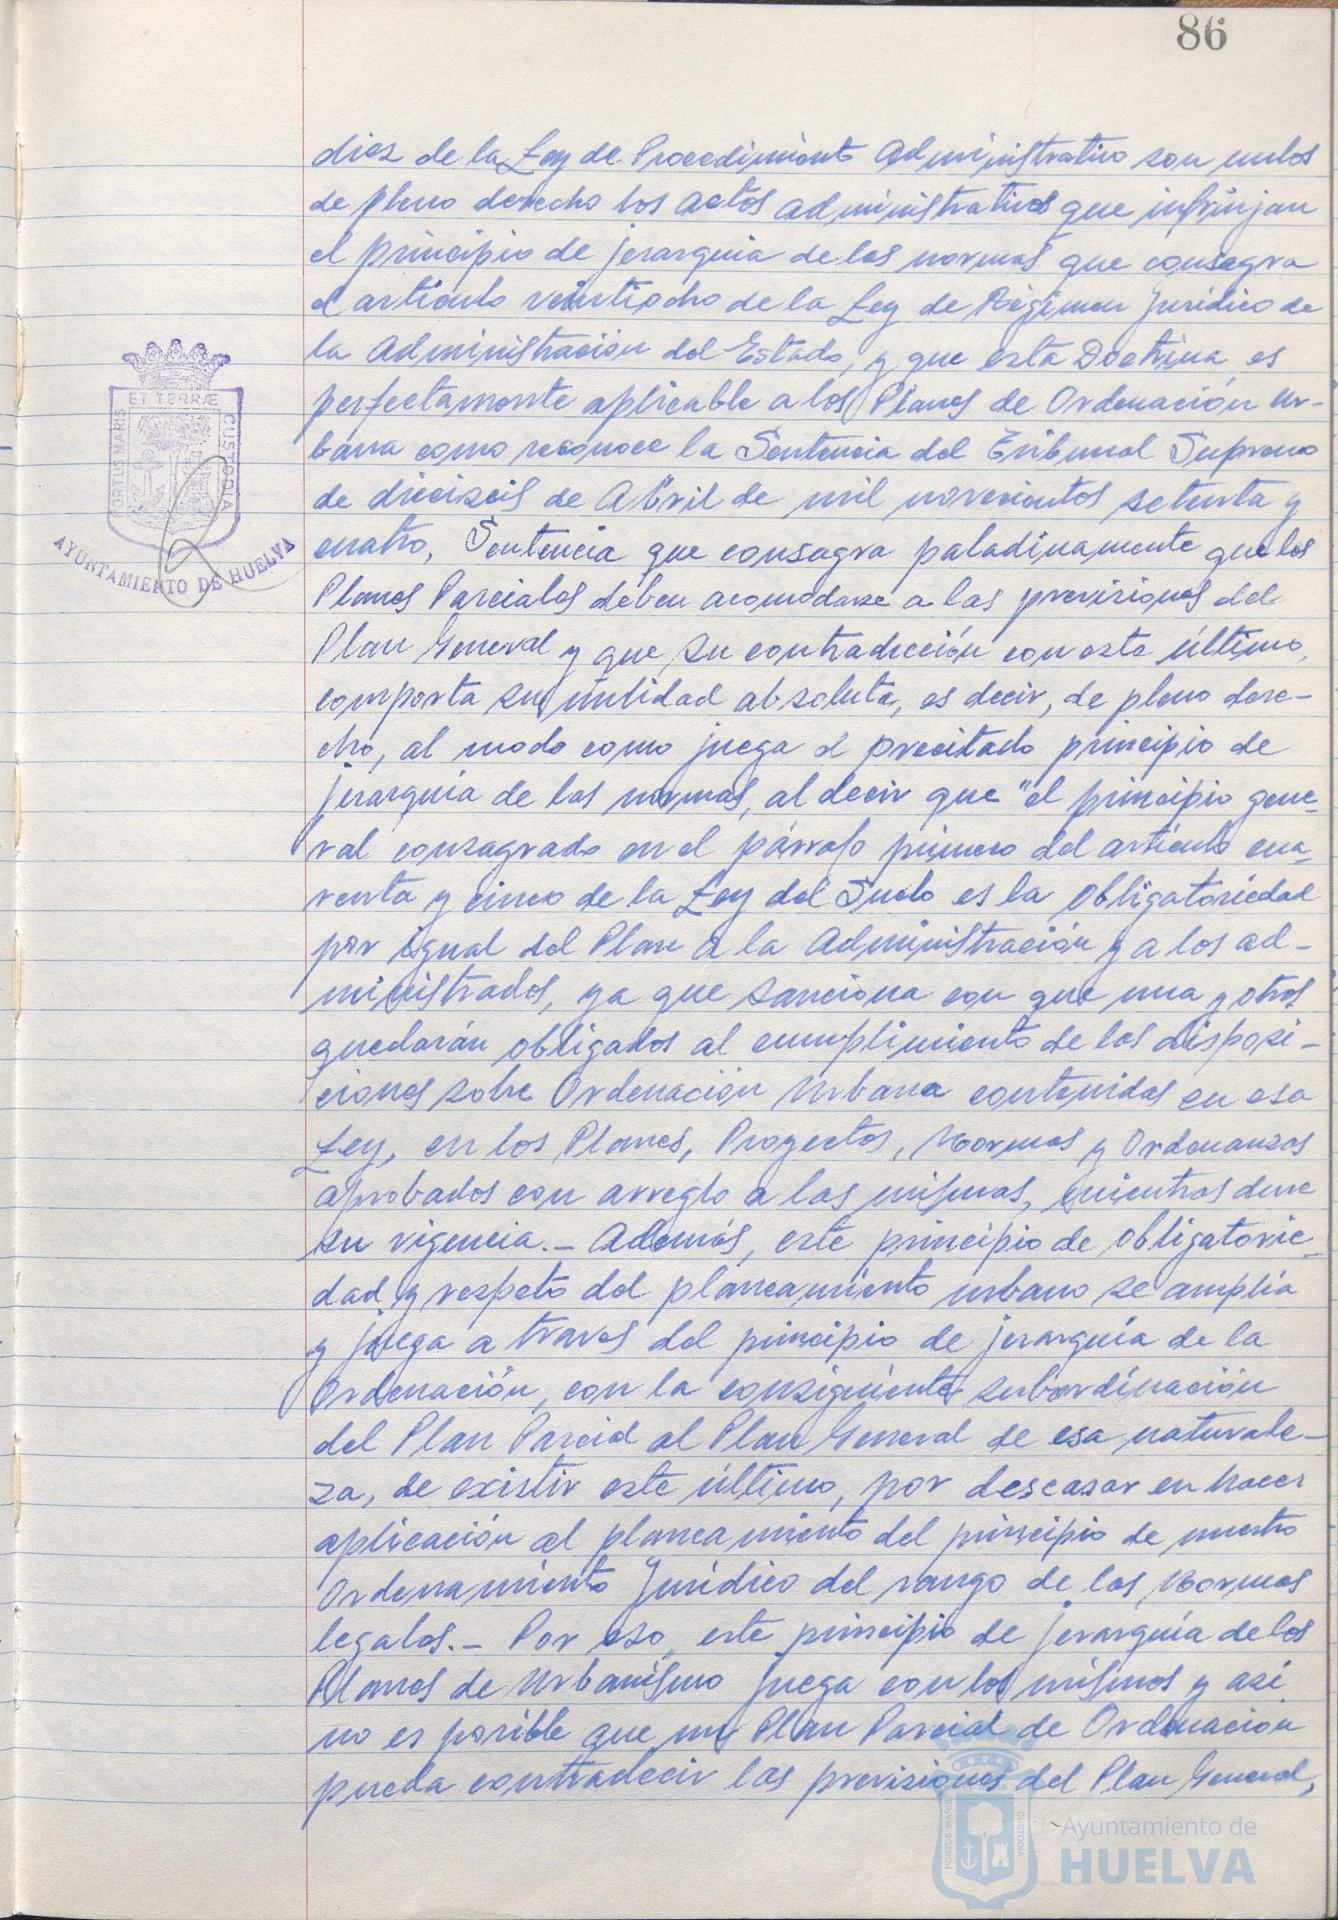 86
diez de la Ley de Procedimiento Administrativo son nulos
de pleno derecho los actos administrativos que infrinjan
el principio de jerarquia de las normas que consagra
el artículo veintiocho de la Ley de Régimen Jurídico de
la Administración del Estado, y que esta Doctrina es
perfectamente aplicable a los Planes de Ordenación Ur-
bana como reconoce la Sentencia del Tribunal Supremo
de dieciseis de Abril de mil novecientos setenta y
cuatro, Sentencia que consagra paladinamente que los
Planes Parciales deben acomodarse a las previsiones del
Plan General y que su contradicción con este último,
comporta su nulidad absoluta, es decir, de pleno dere-
cho, al modo como juega el precitado principio de
jerarquía de las normas, al decir que "el principio gene-
ral consagrado en el párrafo primero del artículo cua-
renta y cinco de la Ley del Suelo es la obligatoriedad
por igual del Plan a la Administración y a los ad-
ministrados, ya que sanciona con que una y otros
quedarán obligados al cumplimiento de las disposi-
ciones sobre Ordenación Urbana contenidas en esa
Ley, en los Planes, Proyectos, Normas y Ordenanzas
aprobados con arreglo a las mismas, mientras dure
su vigencia.- Además, este principio de obligatorie-
dad y respeto del planeamiento urbano se amplía
y juega a traves del principio de jerarquía de la
Ordenación, con la consiguiente subordinación
del Plan Parcial al Plan General de esa naturale-
za, de existir este último, por descasar en hacer
aplicación al planeamiento del principio de nuestro
Ordenamiento Jurídico del rango de las Normas
legales.- Por eso, este principio de jerarquía de los
Planes de Urbanismo juega con los mismos y asi
no es posible que un Plan Parcial de Ordenación
pueda contradecir las previsiones del Plan General,
ET TERRÆ
PORTUS MARIS
CUSTODIA
AYUNTAMIENTO DE HUELVA
PORTUS MARIS
CUSTODIA
Ayuntamiento de
HUELVA